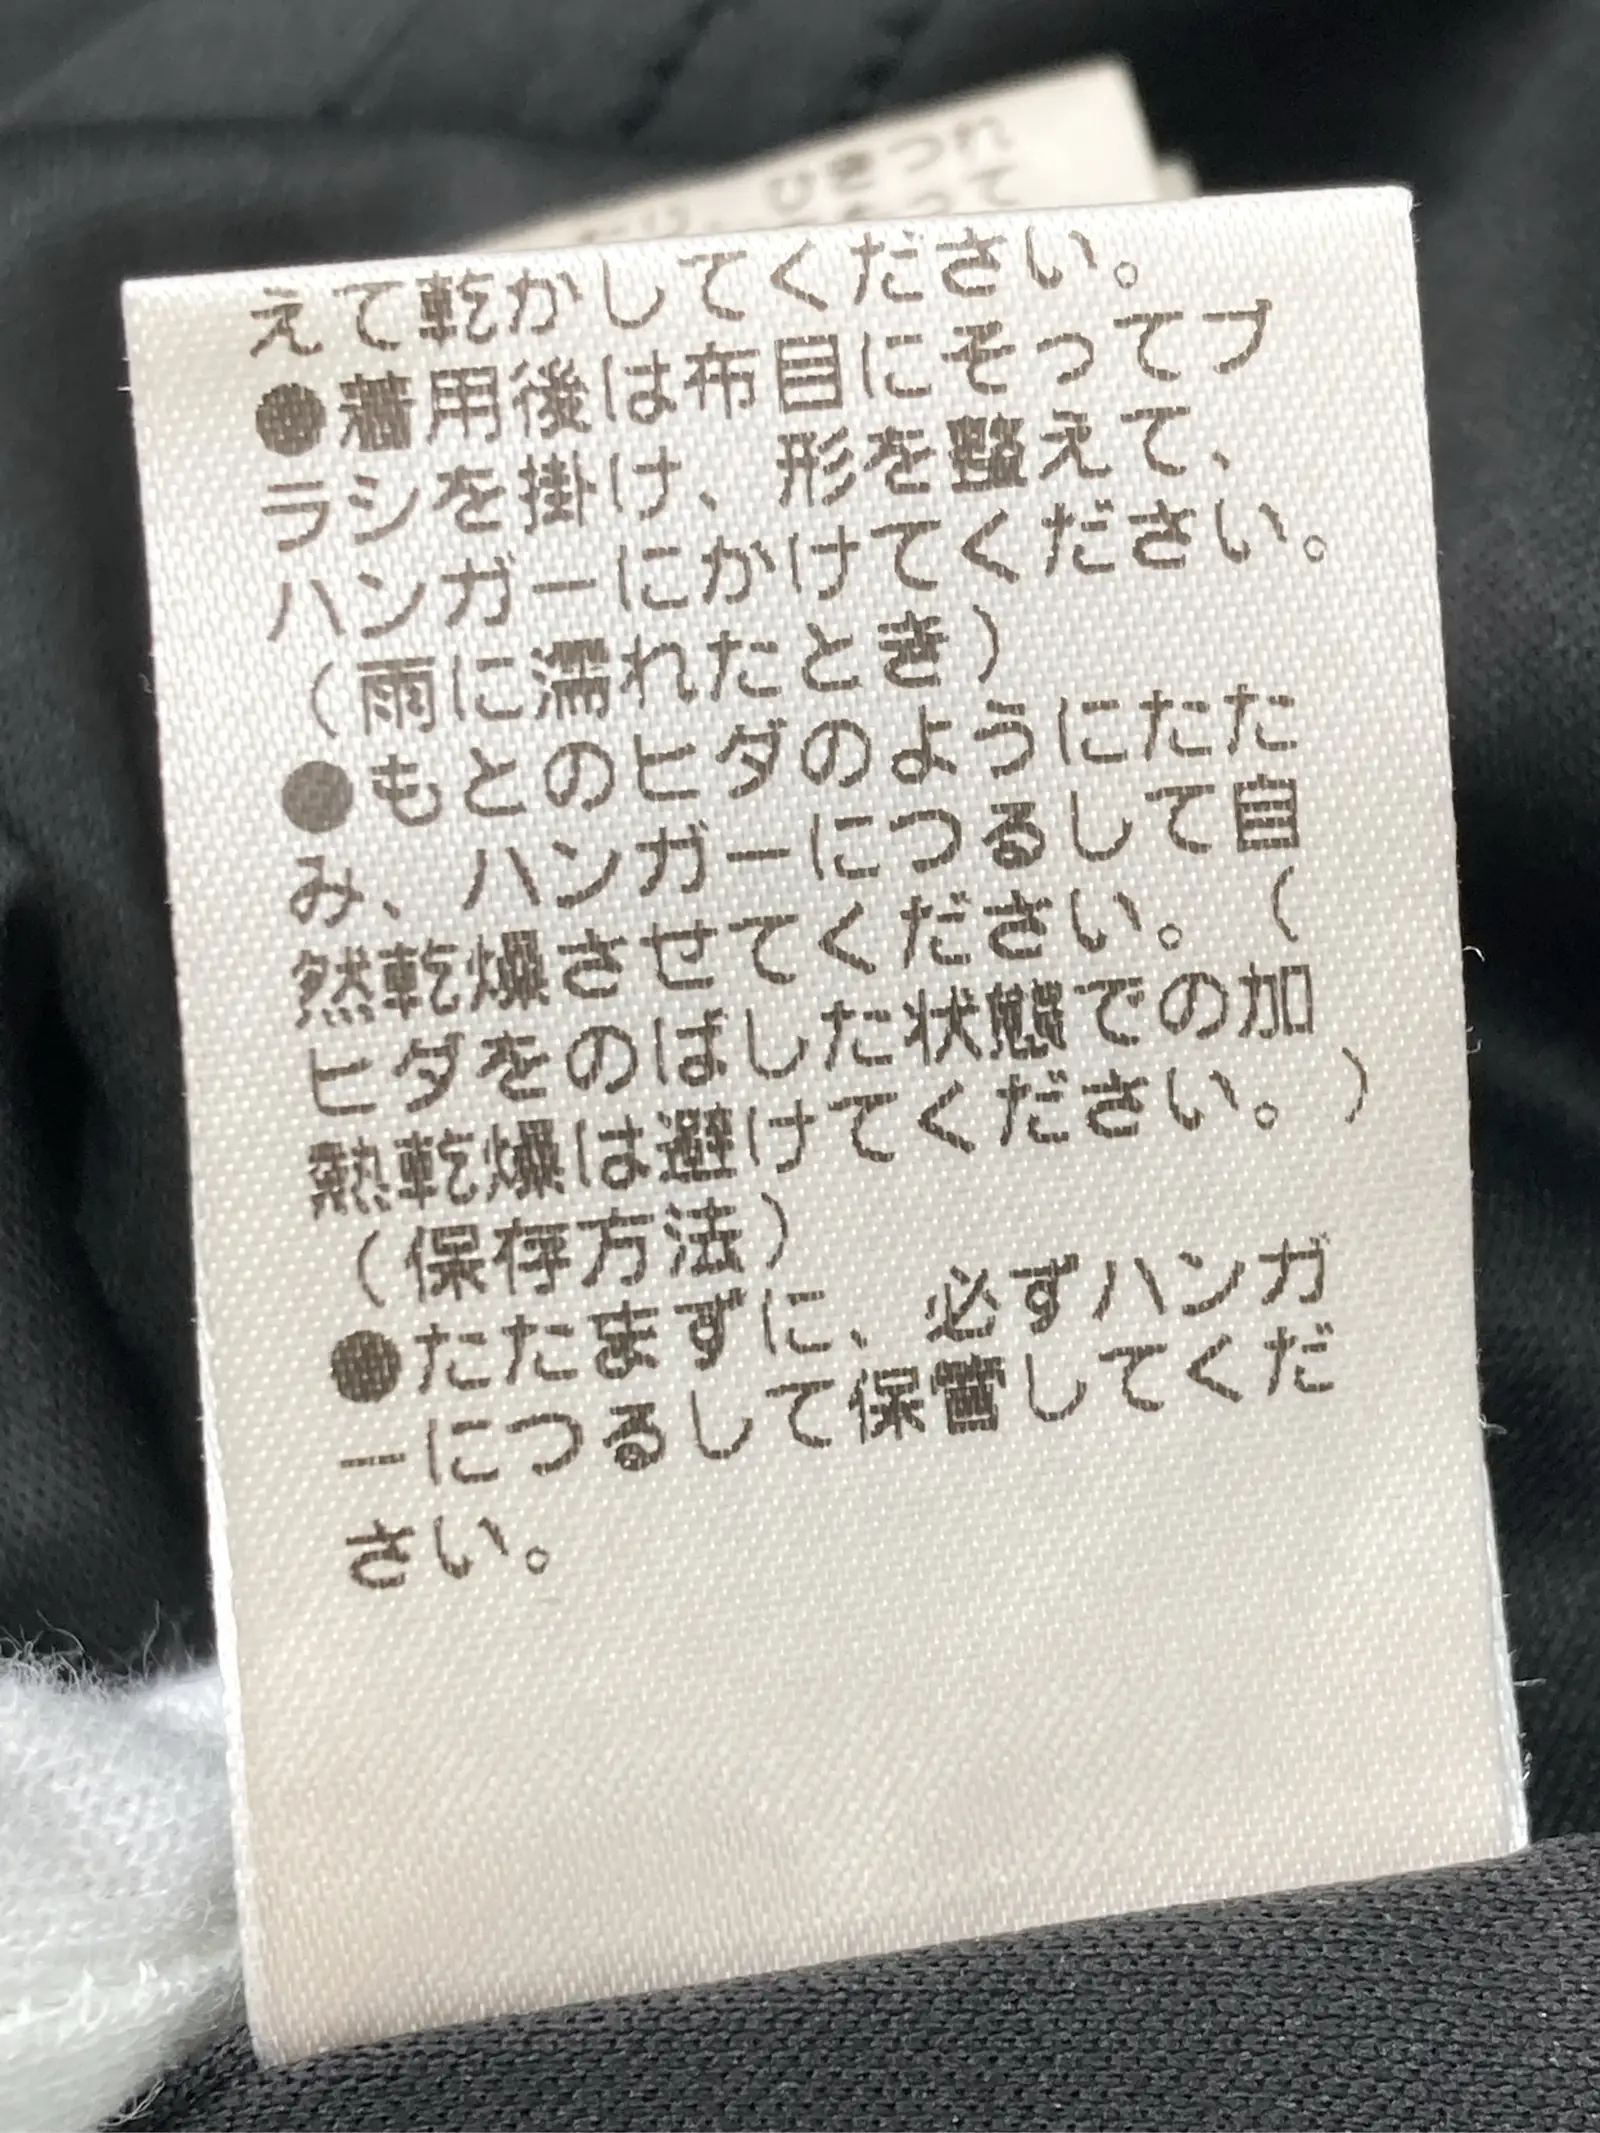 ひきつれ
えて乾かしてください。
●着用後は布目にそってブ
ラシを掛け、形を整えて、
ハンガーにかけてください。
（雨に濡れたとき）
●もとのヒダのようにたた
み、ハンガーにつるして自
然乾燥させてください。（
ヒダをのばした状態での加
熱乾燥は避けてください。）
（保存方法）
●たたまずに、必ずハンガ
ーにつるして保管してくだ
さい。